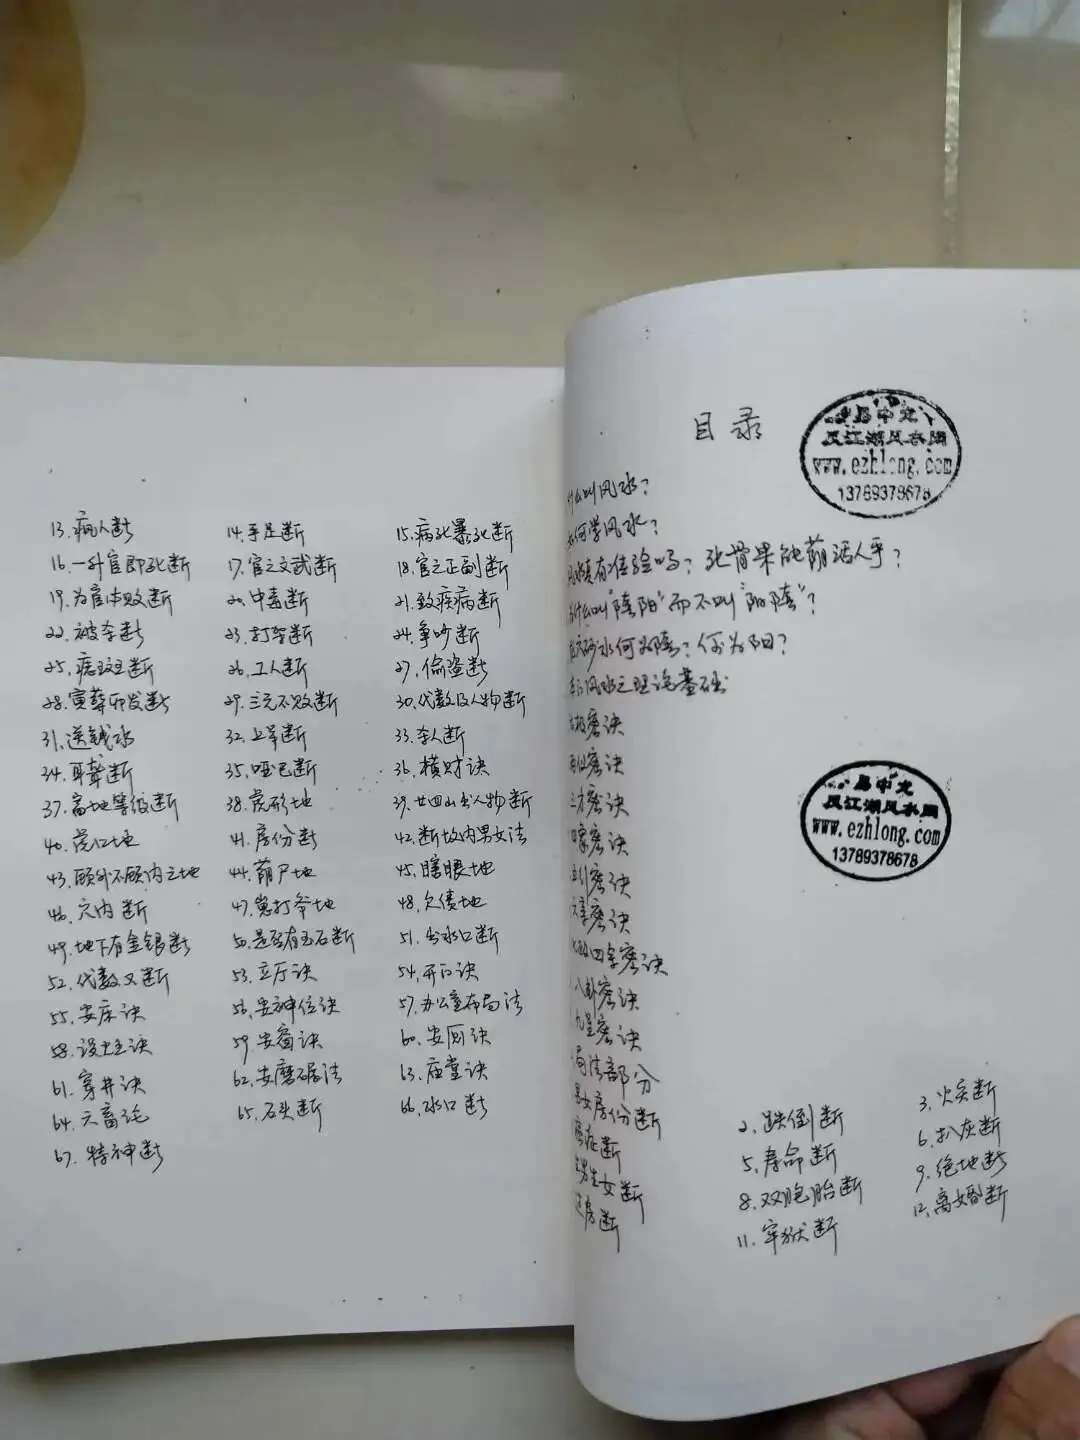 13.病人断 14.手足断 15.病死暴死断
16.一升官即死断 17.官之文武断 18.官之正副断
19.为官体败断 20.中毒断 21.致疾病断
22.被杀断 23.打架断 24.争吵断
25.痣斑断 26.工人断 27.偷盗断
28.寅葬卯发断 29.三元不败断 30.代数及人物断
31.送钱水 32.上吊断 33.杀人断
34.耳聋断 35.哑巴断 36.横财诀
37.富地等级断 38.虎形地 39.廿四山出人物断
40.虎口地 41.房份断 42.断坟内男女法
43.顾外不顾内之地 44.荫尸地 45.瞎眼地
46.穴内断 47.崽打爷地 48.欠债地
49.地下有金银断 50.是否有玉石断 51.出水口断
52.代数又断 53.立厅诀 54.开门诀
55.安床诀 56.安神位诀 57.办公室布局法
58.设土主诀 59.安窗诀 60.安厕诀
61.穿井诀 62.安磨碾法 63.庙堂诀
64.六畜论 65.石头断 66.水口断
67.特神断
目录
易中龙
江湖风水网
www.ezhlong.com
13789378678
什么叫风水?
如何学风水?
风水真有准验吗?死骨果能荫活人乎?
为什么叫"阴阳"而不叫"阳阴"?
砂水何为阴?何为阳?
风水之理论基础
太极密诀
两仪密诀
三才密诀
四象密诀
五行密诀
六事密诀
四字密诀
八卦密诀
九星密诀
易中龙
江湖风水网
www.ezhlong.com
13789378678
局法部分
男女房份断
癌症断 2.跌倒断 3.火灾断
生男生女断 5.寿命断 6.扒灰断
房断 8.双胞胎断 9.绝地断
11.牢狱断 12.离婚断